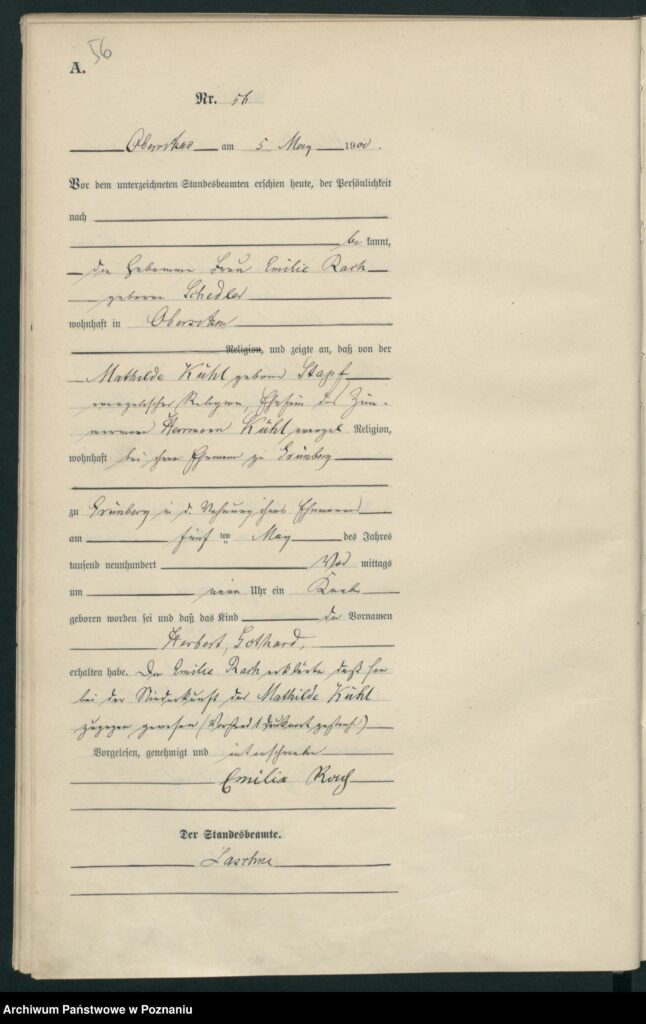 56
A.
Nr. 56
am 5 May 1900.
Vor dem unterzeichneten Standesbeamten erschien heute, der Persönlichkeit
nach
be kannt,
die Hebamme Frau Emilie Rach
geborene Schedler
wohnhaft in
Religion, und zeigte an, daß von der
Mathilde Kühl geborene Stapf
evangelischer Religion, Ehefrau des Zim-
mermann Herrmann Kühl evangel. Religion,
wohnhaft bei ihrem Ehemann zu Grünberg
zu Grünberg in d. Wohnung ihres Ehemanns
am fünf ten May des Jahres
tausend neunhundert Vor mittags
um neun Uhr ein Knabe
geboren worden sei und daß das Kind die Vornamen
Herbert, Gothard,
erhalten habe. Die Emilie Rach erklärte daß sie
bei der Niederkunft der Mathilde Kühl
zugegen gewesen (Vorstehd 1 Druckwort gestrich)
Vorgelesen, genehmigt und unterschrieben
Emilie Rach
Der Standesbeamte.
Archiwum Państwowe w Poznaniu